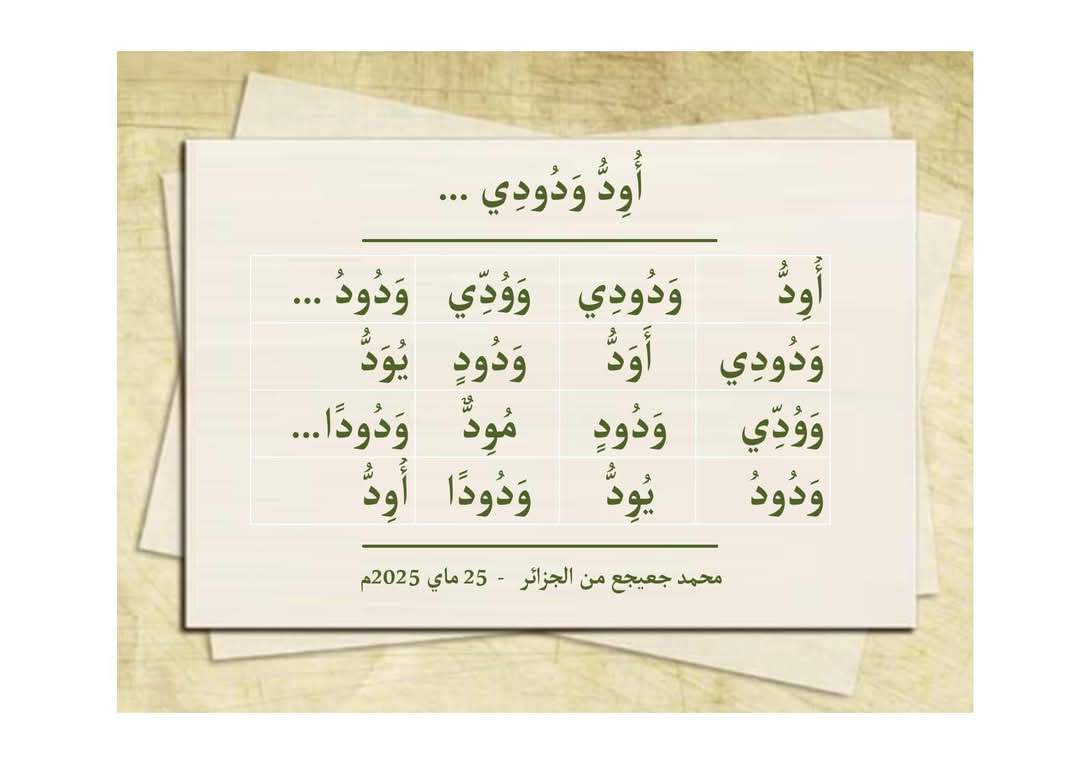 أُوِدُّ وَدُودِي ...
أُوِدُّ وَدُودِي وَوُدِّي وَدُودُ ...
وَدُودِي أَوَدُّ وَدُودٍ يُوَدُّ
وَوُدِّي وَدُودٍ مُوِدٌّ وَدُودًا...
وَدُودُ يُوِدُّ وَدُودًا أُوِدُّ
محمد جعيجع من الجزائر - 25 ماي 2025م